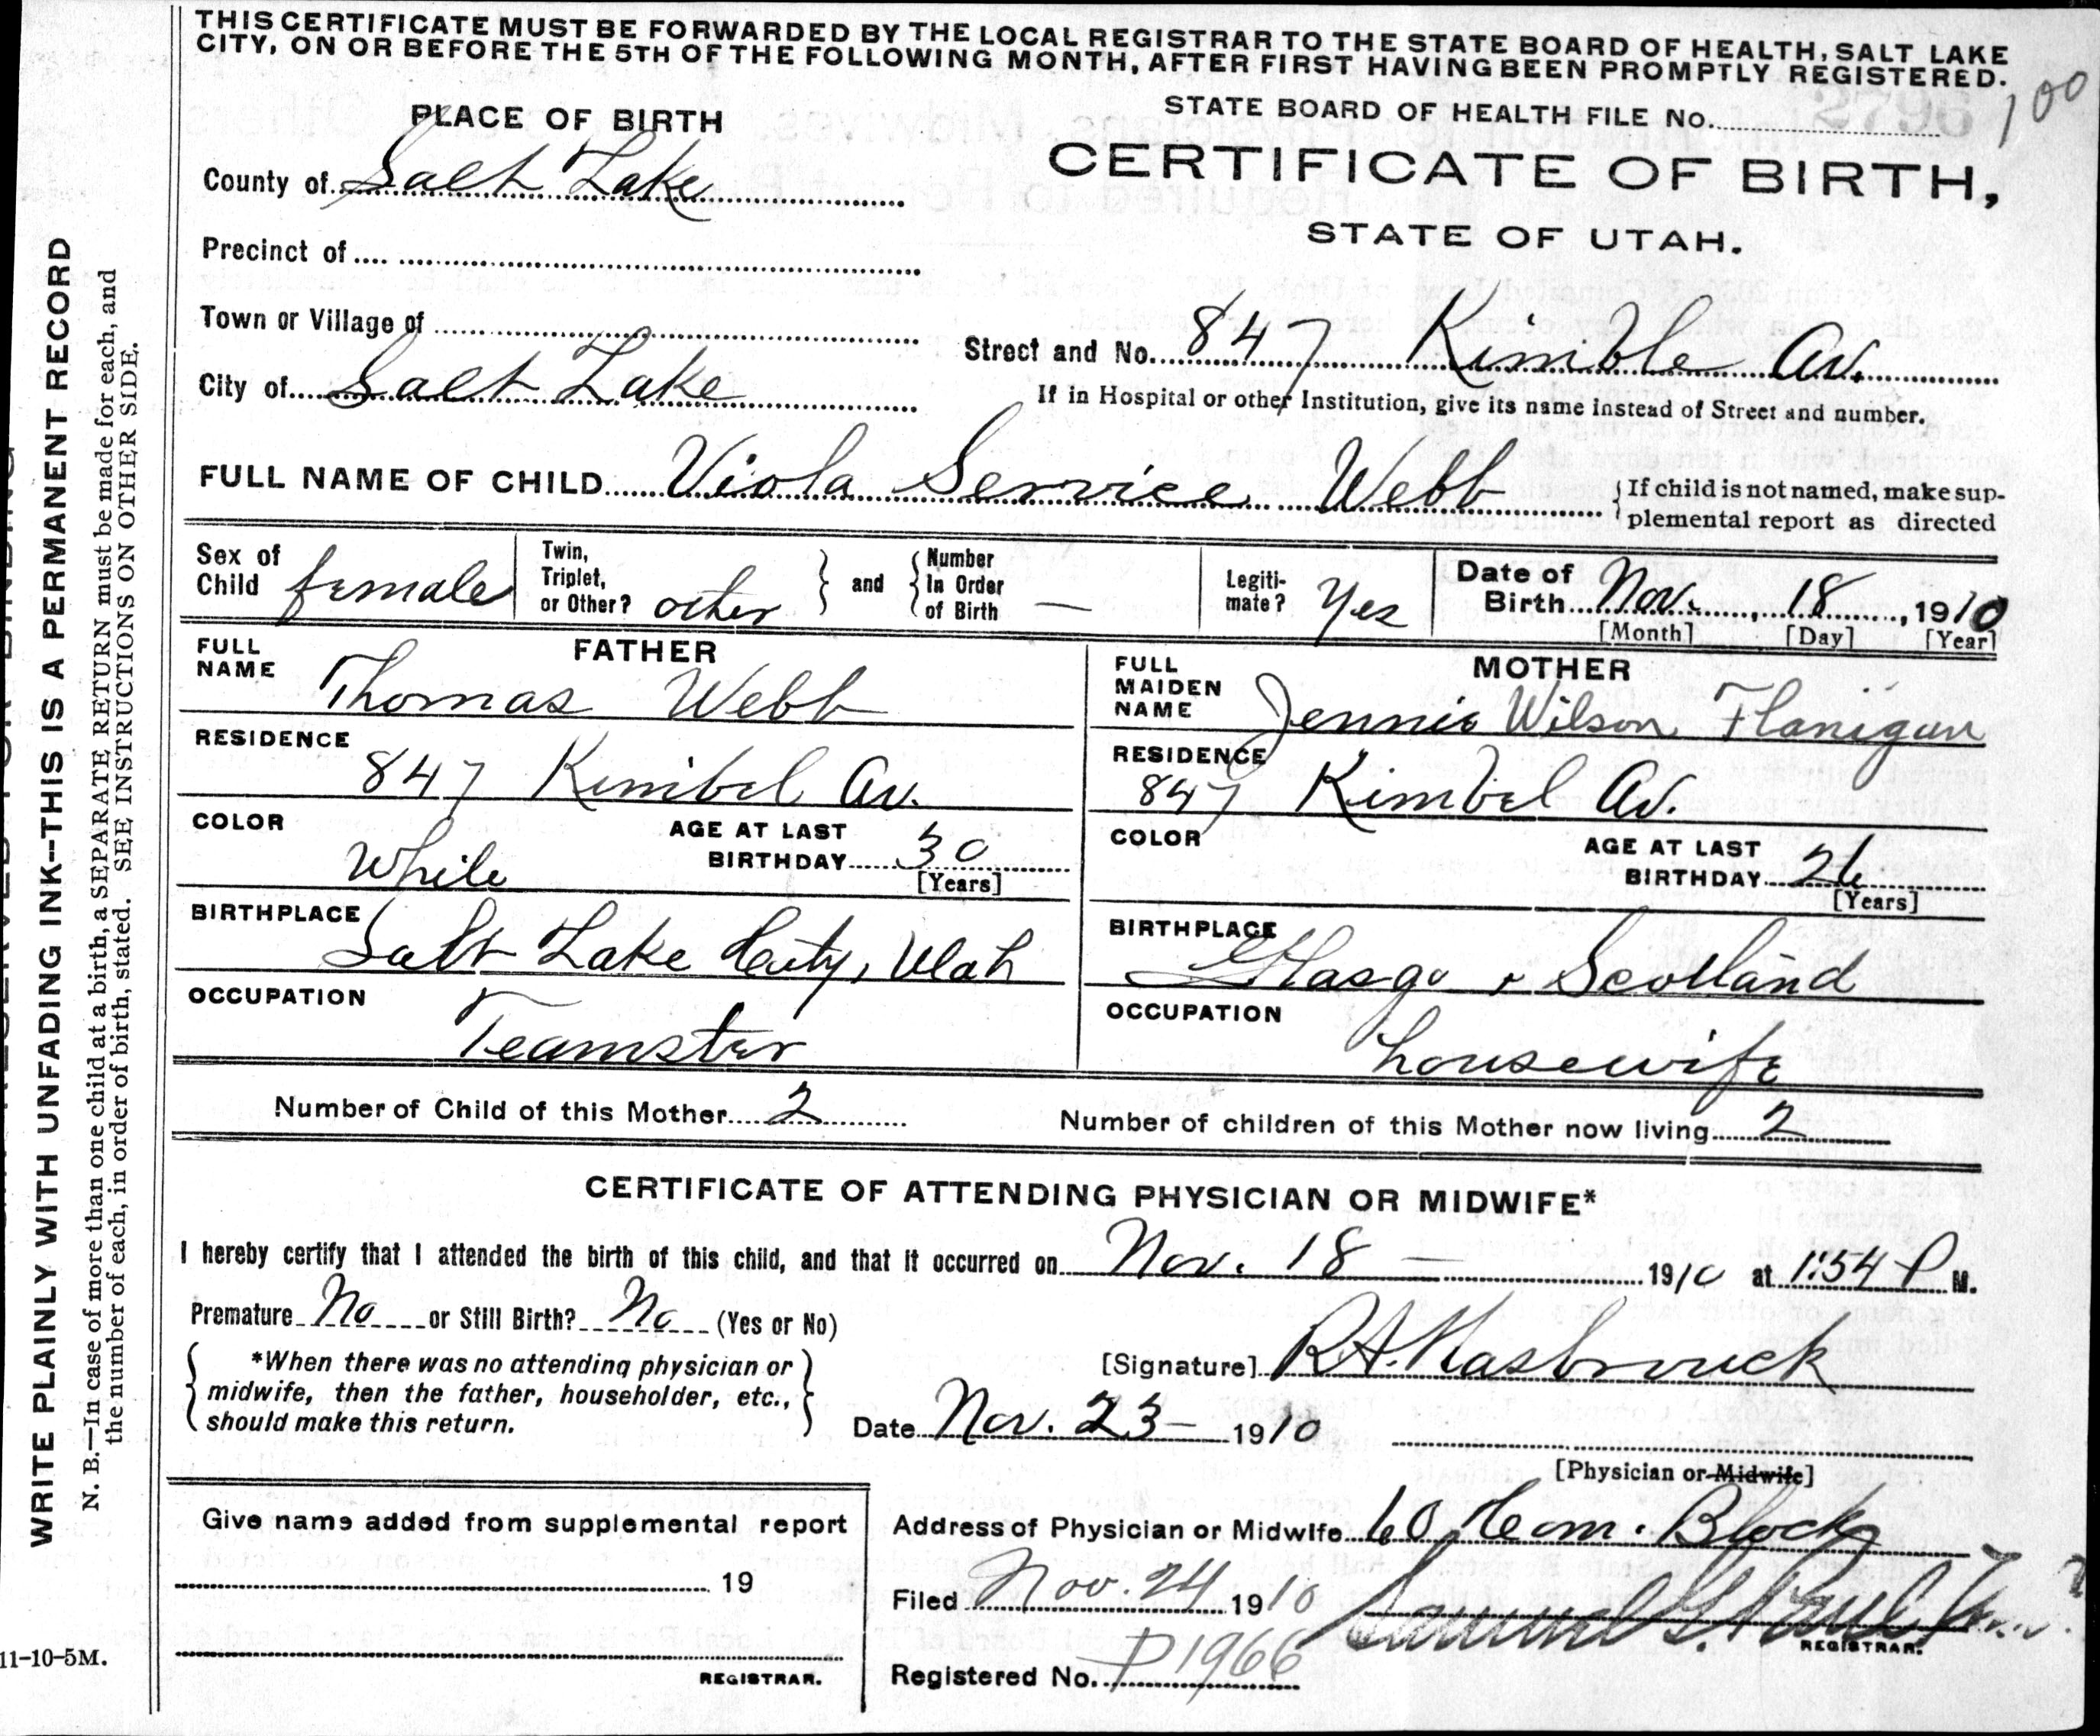 THIS CERTIFICATE MUST BE FORWARDED BY THE LOCAL REGISTRAR TO THE STATE BOARD OF HEALTH, SALT LAKE
CITY, ON OR BEFORE THE 5TH OF THE FOLLOWING MONTH, AFTER FIRST HAVING BEEN PROMPTLY REGISTERED.
100
PLACE OF BIRTH
STATE BOARD OF HEALTH FILE No. 2796
County of Salt Lake
CERTIFICATE OF BIRTH,
STATE OF UTAH.
Precinct of
Town or Village of
Street and No. 847 Kimble Av.
City of Salt Lake
If in Hospital or other Institution, give its name instead of Street and number.
FULL NAME OF CHILD Viola Service Webb
If child is not named, make sup-
plemental report as directed
Sex of Child female
Twin, Triplet, or Other? other
and
Number In Order of Birth —
Legiti-
mate? Yes
Date of Birth Nov. 18, 1910
[Month] [Day] [Year]
FATHER
FULL NAME Thomas Webb
RESIDENCE
847 Kimbel Av.
COLOR White
AGE AT LAST BIRTHDAY 30
[Years]
BIRTHPLACE
Salt Lake City, Utah
OCCUPATION
Teamster
MOTHER
FULL MAIDEN NAME Jennie Wilson Flanigan
RESIDENCE
847 Kimbel Av.
COLOR
AGE AT LAST BIRTHDAY 26
[Years]
BIRTHPLACE
Glasgo, Scotland
OCCUPATION
housewife
Number of Child of this Mother 2
Number of children of this Mother now living 2
CERTIFICATE OF ATTENDING PHYSICIAN OR MIDWIFE*
I hereby certify that I attended the birth of this child, and that it occurred on Nov. 18 — 1910 at 1:54 P M.
Premature No or Still Birth? No (Yes or No)
*When there was no attending physician or
midwife, then the father, householder, etc.,
should make this return.
[Signature] R.A. Hasbrouck
Date Nov. 23 — 1910
[Physician or Midwife]
Give name added from supplemental report
19
REGISTRAR.
Address of Physician or Midwife 60 Com. Block
Filed Nov. 24 1910
Samuel G. Paul
REGISTRAR.
Registered No. P1966
WRITE PLAINLY WITH UNFADING INK--THIS IS A PERMANENT RECORD
N. B.—In case of more than one child at a birth, a SEPARATE RETURN must be made for each, and
the number of each, in order of birth, stated. SEE INSTRUCTIONS ON OTHER SIDE.
11-10-5M.